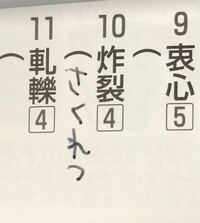 9 衷心 5
(
10 炸裂 4
(さくれつ
11 軋轢 4
(